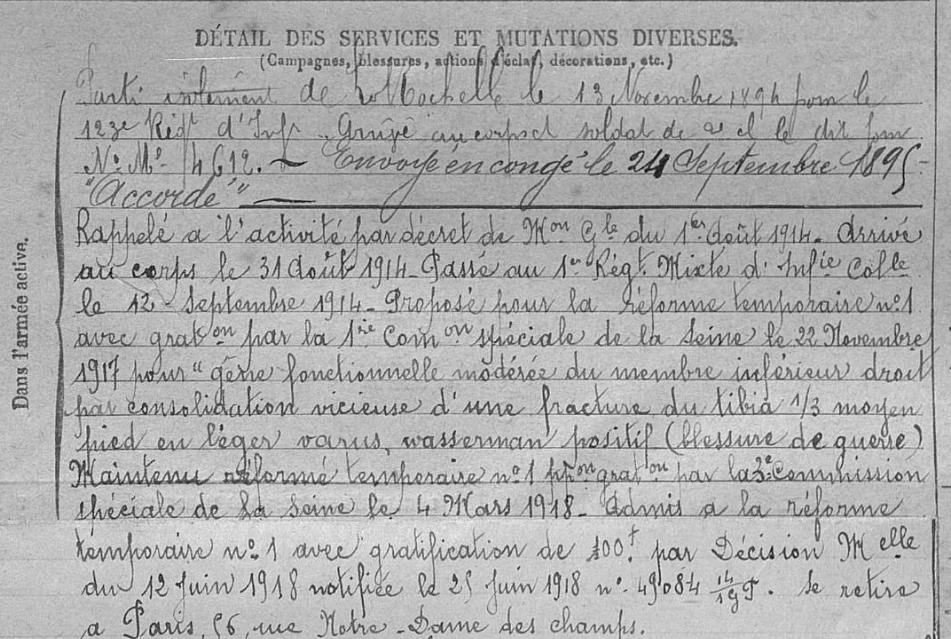 DÉTAIL DES SERVICES ET MUTATIONS DIVERSES.
(Campagnes, blessures, actions d'éclat, décorations, etc.)
Parti isolément de La Rochelle le 13 Novembre 1894 pour le
123e Régt d'Infie Arrivé au corps et soldat de 2e cl le dit jour
No Mle 4612. — Envoyé en congé le 24 Septembre 1895
"Accordé" —
Dans l'armée active.
Rappelé à l'activité par décret de Mon Gle du 1er Août 1914 - Arrivé
au corps le 31 Août 1914 - Passé au 1er Régt Mixte d'Infie Colle
le 12 Septembre 1914 - Proposé pour la réforme temporaire no 1
avec graton par la 1re Comon spéciale de la Seine le 22 Novembre
1917 pour "gêne fonctionnelle modérée du membre inférieur droit
par consolidation vicieuse d'une fracture du tibia 1/3 moyen
pied en léger varus, wasserman positif (blessure de guerre)
Maintenu réformé temporaire no 1 graton par la 3e Commission
spéciale de la Seine le 4 Mars 1918 - Admis a la réforme
temporaire no 1 avec gratification de 400f par Décision Melle
du 12 Juin 1918 notifiée le 25 Juin 1918 no 49084 14/19 P. Se retire
a Paris, 56, rue Notre-Dame des champs.